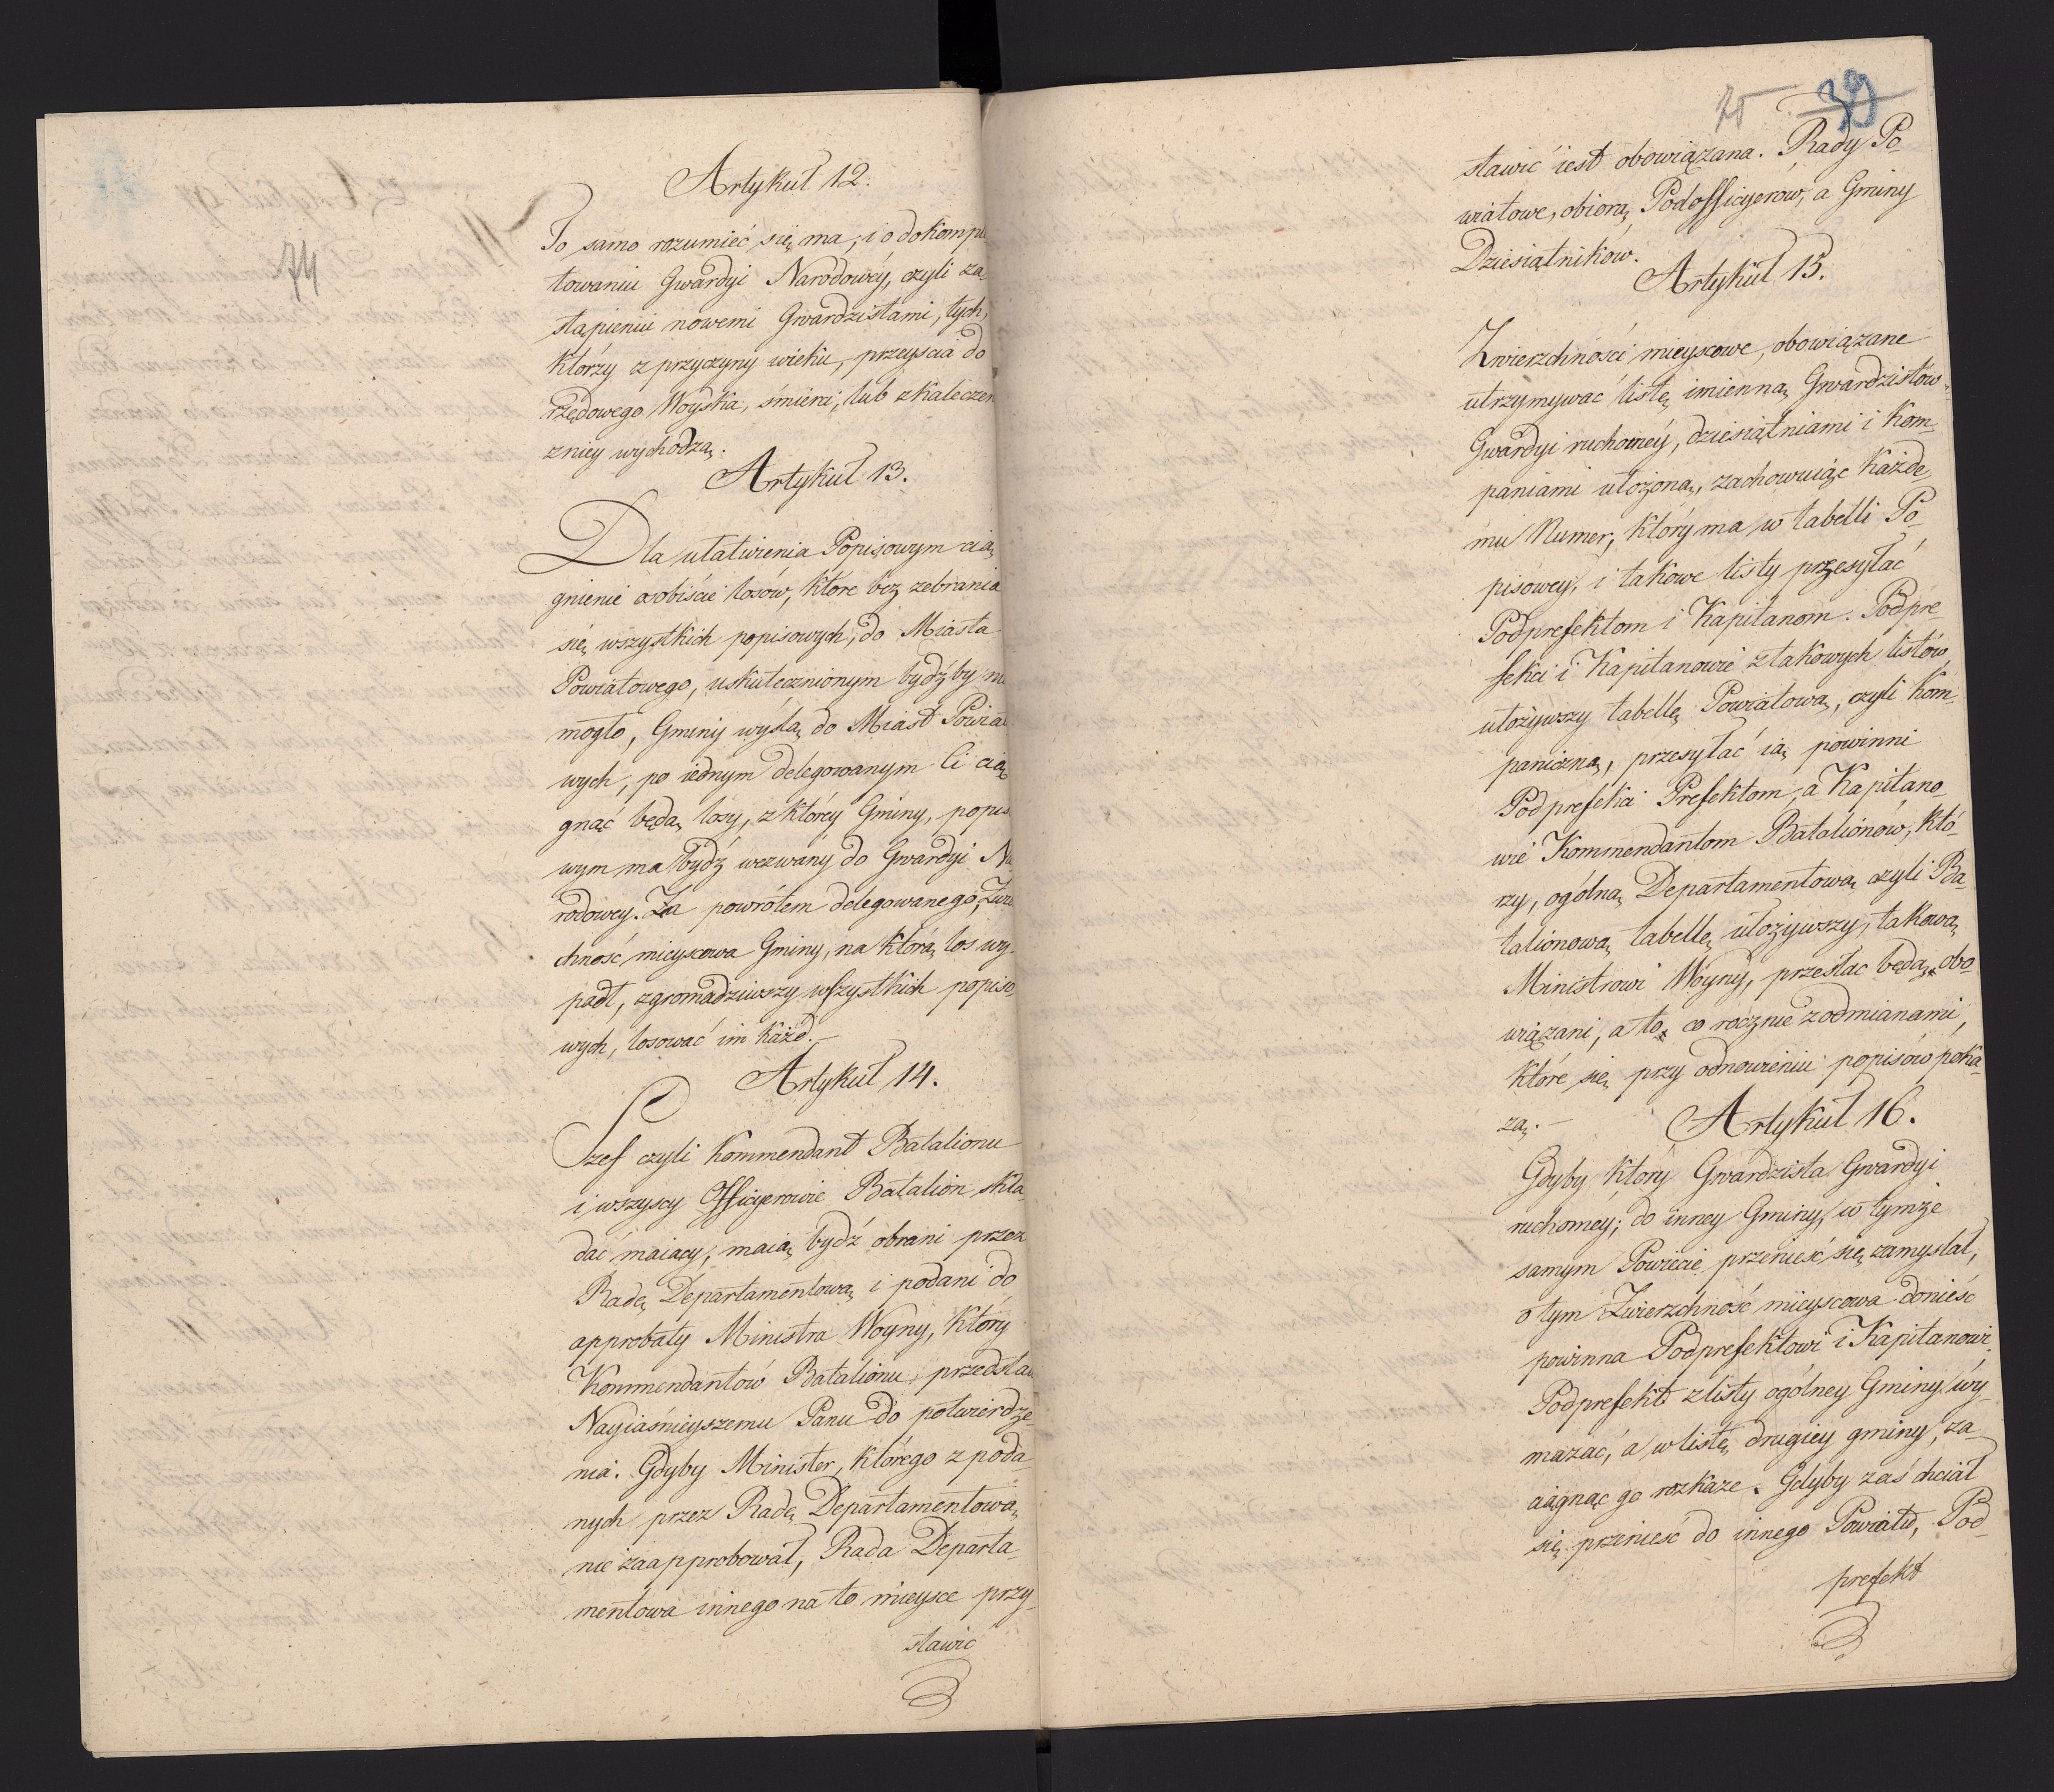 74
Artykuł 12.
To samo rozumieć się ma, i o dokomple
towaniu Gwardyi Narodowéy, czyli za-
stąpieniu nowemi Gwardzistami, tych,
którzy z przyczyny wieku, przeyscia do
rzędowego Woyska, śmierci, lub skaleczen
zniey wychodzą.
Artykuł 13.
Dla ułatwienia Popisowym cią
gnienie osobiście losów, które bez zebrania
się wszystkich popisowych, do Miasta
Powiatowego, uskutecznionym bydź by nie
mogło, Gminy wyślą do Miast Powiat
wych, po iednym délegowanym Ci cią
gnąć będą losy, z któréy Gminy, popis
wym ma bydź wezwány do Gwardyi Na
rodowey. Za powrótem delegowanego, Zwie
chność mieyscowa Gminy, na którą los wy-
padł, zgromadziwszy wszystkich popiso
wych, losować im każe.—
Artykuł 14.
Szef czyli Kommendant Batalionu
i wszyscy Officyerowie Batalion skła-
dać maiący, maią bydź obrani przez
Radę Departamentową i podani do
approbaty Ministra Woyny, który
Kommendantów Batalionu, przedstaw
Nayiaśnieyszemu Panu do potwierdze-
nia. Gdyby Minister, którego z poda-
nych przez Radę Departamentową,
nie zaapprobował, Rada Departa-
mentowa innego na to mieysce przy-
stawić
25 39
stawić iest obowiązana. Rady Po-
wiatowe, obiorą Podofficyerów, a Gminy
Dziesiątników.
Artykuł 15.
Zwierzchności mieyscowe, obowiązane
utrzymywać listę imienną Gwardzistów
Gwardyi ruchoméy, dziesiątniami i Kom-
paniami ułożoną, zachowuiąc każde-
mu Numer, który ma w tabelli Po-
pisowey, i takowe listy przesyłać
Podprefektom i Kapitanom. Podpre-
fekci i Kapitanowie z takowych listów
ułożywszy tabellę Powiatową, czyli Kom-
paniczną, przesyłać ią powinni
Podprefekci Prefektom, a Kapitano-
wie Kommendantom Batalionów, któ-
rzy, ogólną Departamentową czyli Ba-
talionową tabellę ułożywszy, takową
Ministrowi Woyny, przesłac będą obo-
wiązani, a to co rocznie z odmianami,
które się przy odnowieniu popisów poka-
zą.—
Artykuł 16.
Gdyby który Gwardzista Gwardyi
ruchomey, do inney Gminy w tymże
samym Powiecie przenieść się zamyslał,
o tym Zwierzchność mieyscowa donieść
powinna Podprefektowi i Kapitanowi.
Podprefekt z listy ogólney Gminy wy-
mazać, a w listę drugiey gminy, za-
ciągnąc go rozkaze. Gdyby zaś chciał
się przenieść do innego Powiatu, Pod-
prefekt